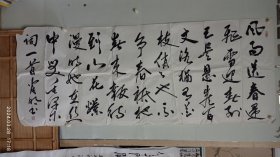 风雨送春归
飞雪迎春到
已是悬崖百
丈冰犹有花
枝俏俏也不
争春只把
春来报待
到山花烂
漫时她在丛
中笑
词一首